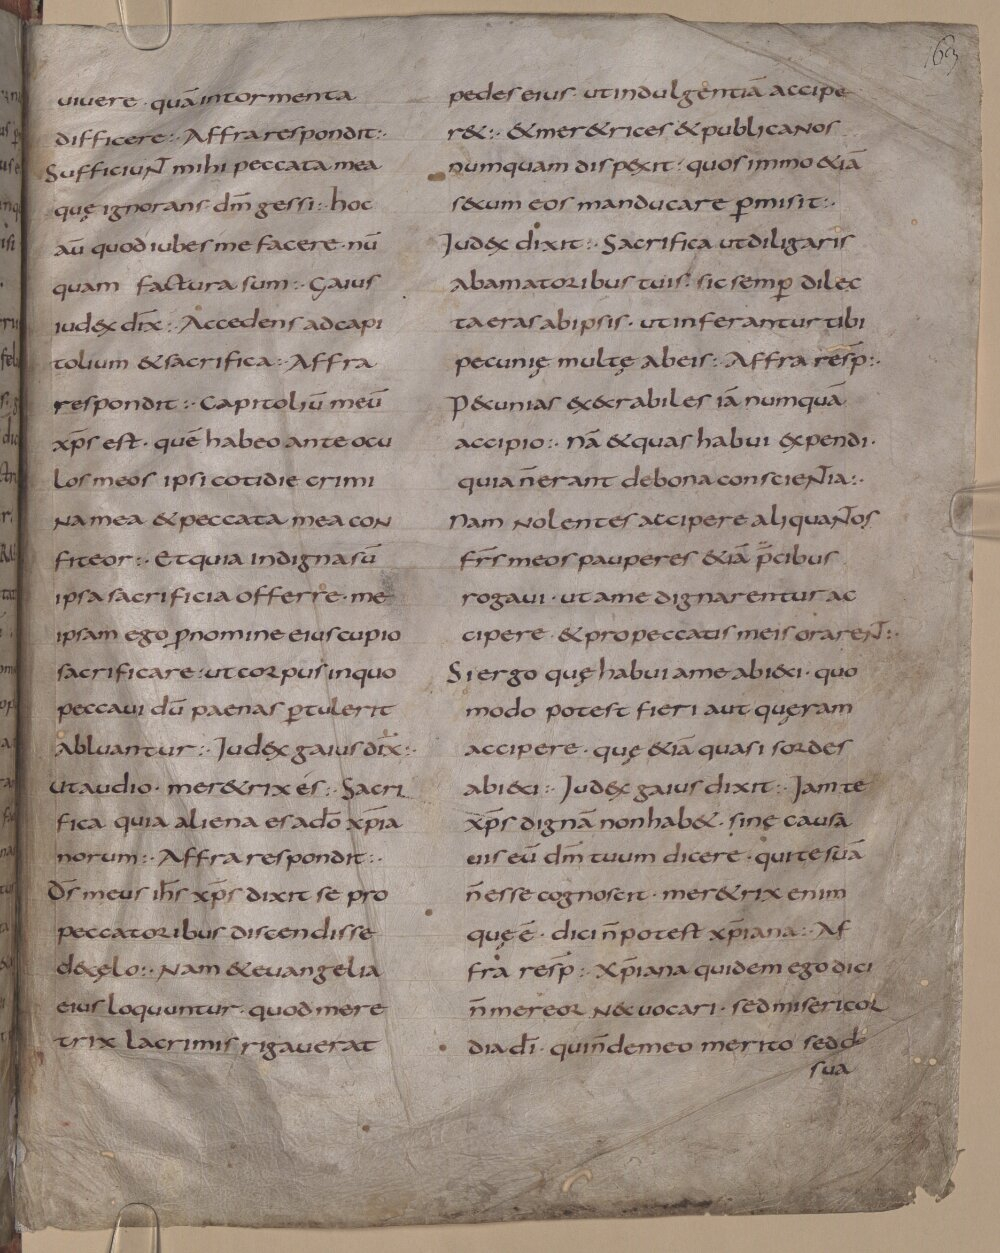 63
vivere · quā in tormenta
difficere :· Affra respondit :·
Sufficiuñt mihi peccata mea
quę ignorans · dm̄ gessi :· hoc
aū quod iubes me facere · nū
quam factura sum :· Gaius
iudex dix̄ :· Accedens ad capi
tolium & sacrifica :· Affra
respondit :· Capitoliū meū
xp̄s est · quē habeo ante ocu
los meos ipsi cotidie crimi
na mea & peccata mea con
fiteor :· Et quia indigna sū
ipsa sacrificia offerre · me
ipsam ego ꝓ nomine eius cupio
sacrificare : ut corpus in quo
peccavi dū paenas ꝑtulerit
abluantur :· Judex gaius dix̄ :·
Ut audio · mer&rix és :· Sacri
fica quia aliena es a dō xp̄ia
norum :· Affra respondit :·
D̄s meus ih̄s xp̄s dixit se pro
peccatoribus discendisse
de cęlo :· Nam & evangelia
eius loquuntur · quod mere
trix lacrimis rigaverat
pedes eius · ut indulgentiā accipe
r& :· & mer&rices & publicanos
numquam dispexit : quos immo &iā
s&um eos manducare ꝑmisit :·
Judex dixit :· Sacrifica ut diligaris
ab amatoribus tuis · sic semꝑ dilec
ta eras ab ipsis · ut inferantur tibi
pecunię multę ab eis :· Affra resp̄ :·
P&unias ex&rabiles iā numquā
accipio :· nā & quas habui expendi ·
quia n̄ erant de bona conscieñtia :·
Nam nolentes accipere aliquañtos
fr̄s meos pauperes &iā p̄cibus
rogavi · ut a me dignarentur ac
cipere · & pro peccatis meis orareñt :·
Si ergo quę habui a me abi&i · quo
modo potest fieri aut quęram
accipere · quę &iā quasi sordes
abi&i :· Judex gaius dixit :· Jam te
xp̄s dignā non hab& · sine causa
vis eū dm̄ tuum dicere · qui te suā
n̄ esse cognoscit · mer&rix enim
quę ē · dici n̄ potest xp̄iana :· Af
fra resp̄ :· Xp̄iana quidem ego dici
n̄ mereor n& vocari · sed misericor
dia dī · qui n̄ de meo merito sed de
sua